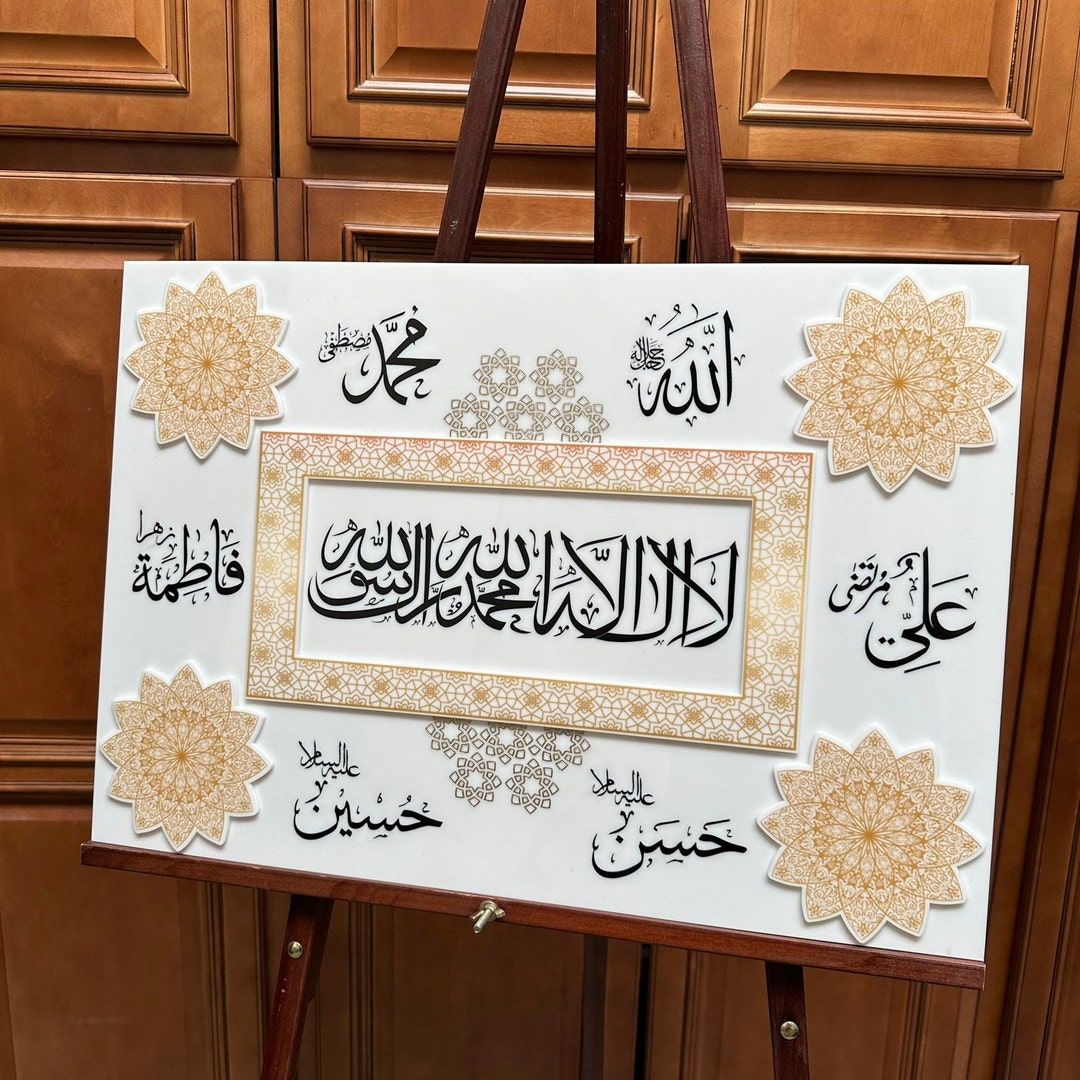 الله جل جلاله
محمد مصطفى
لا اله الا الله محمد رسول الله
علي مرتضى
فاطمة زهرا
حسن عليه السلام
حسين عليه السلام